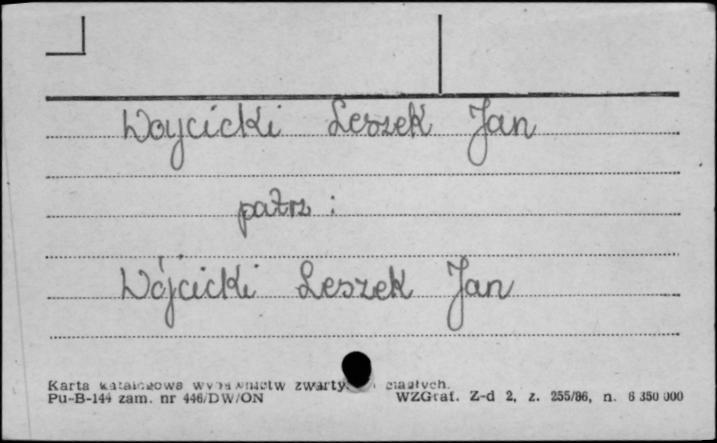 Woycicki Leszek Jan
patrz :
Wójcicki Leszek Jan
Karta katalogowa wydawnictw zwartych i ciągłych.
Pu-B-144 zam. nr 446/DW/ON WZGraf. Z-d 2, z. 255/86, n. 6 350 000